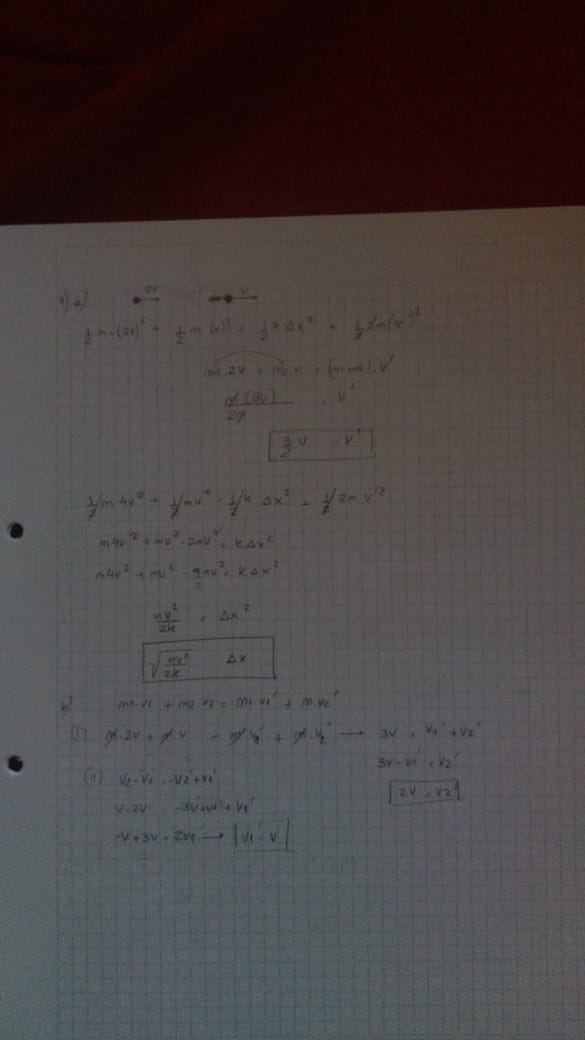 9) a) 2v v
1/2 m·(2v)² + 1/2 m (v)² = 1/2 k Δx² + 1/2 2m(v')²
m1·2v + m2·v = (m1+m2)·v'
m(3v)/2m = v'
3/2 v = v'
1/2 m 4v² + 1/2 mv² = 1/2 k Δx² + 1/2 2m v'²
m4v² + mv² - 2mv'² = kΔx²
m4v² + mv² - 9/2 mv² = kΔx²
mv²/2k = Δx²
√(mv²/2k) = Δx
b) m1·v1 + m2 v2 = m1 v1' + m·v2'
(I) m·2v + m·v = m·v1' + m·v2' → 3v = v1' + v2'
3v - v1' = v2'
(II) v2 - v1 = -v2' + v1'
2v = v2'
v - 2v = -3v + v1' + v1'
-v + 3v = 2v1' → v1' = v